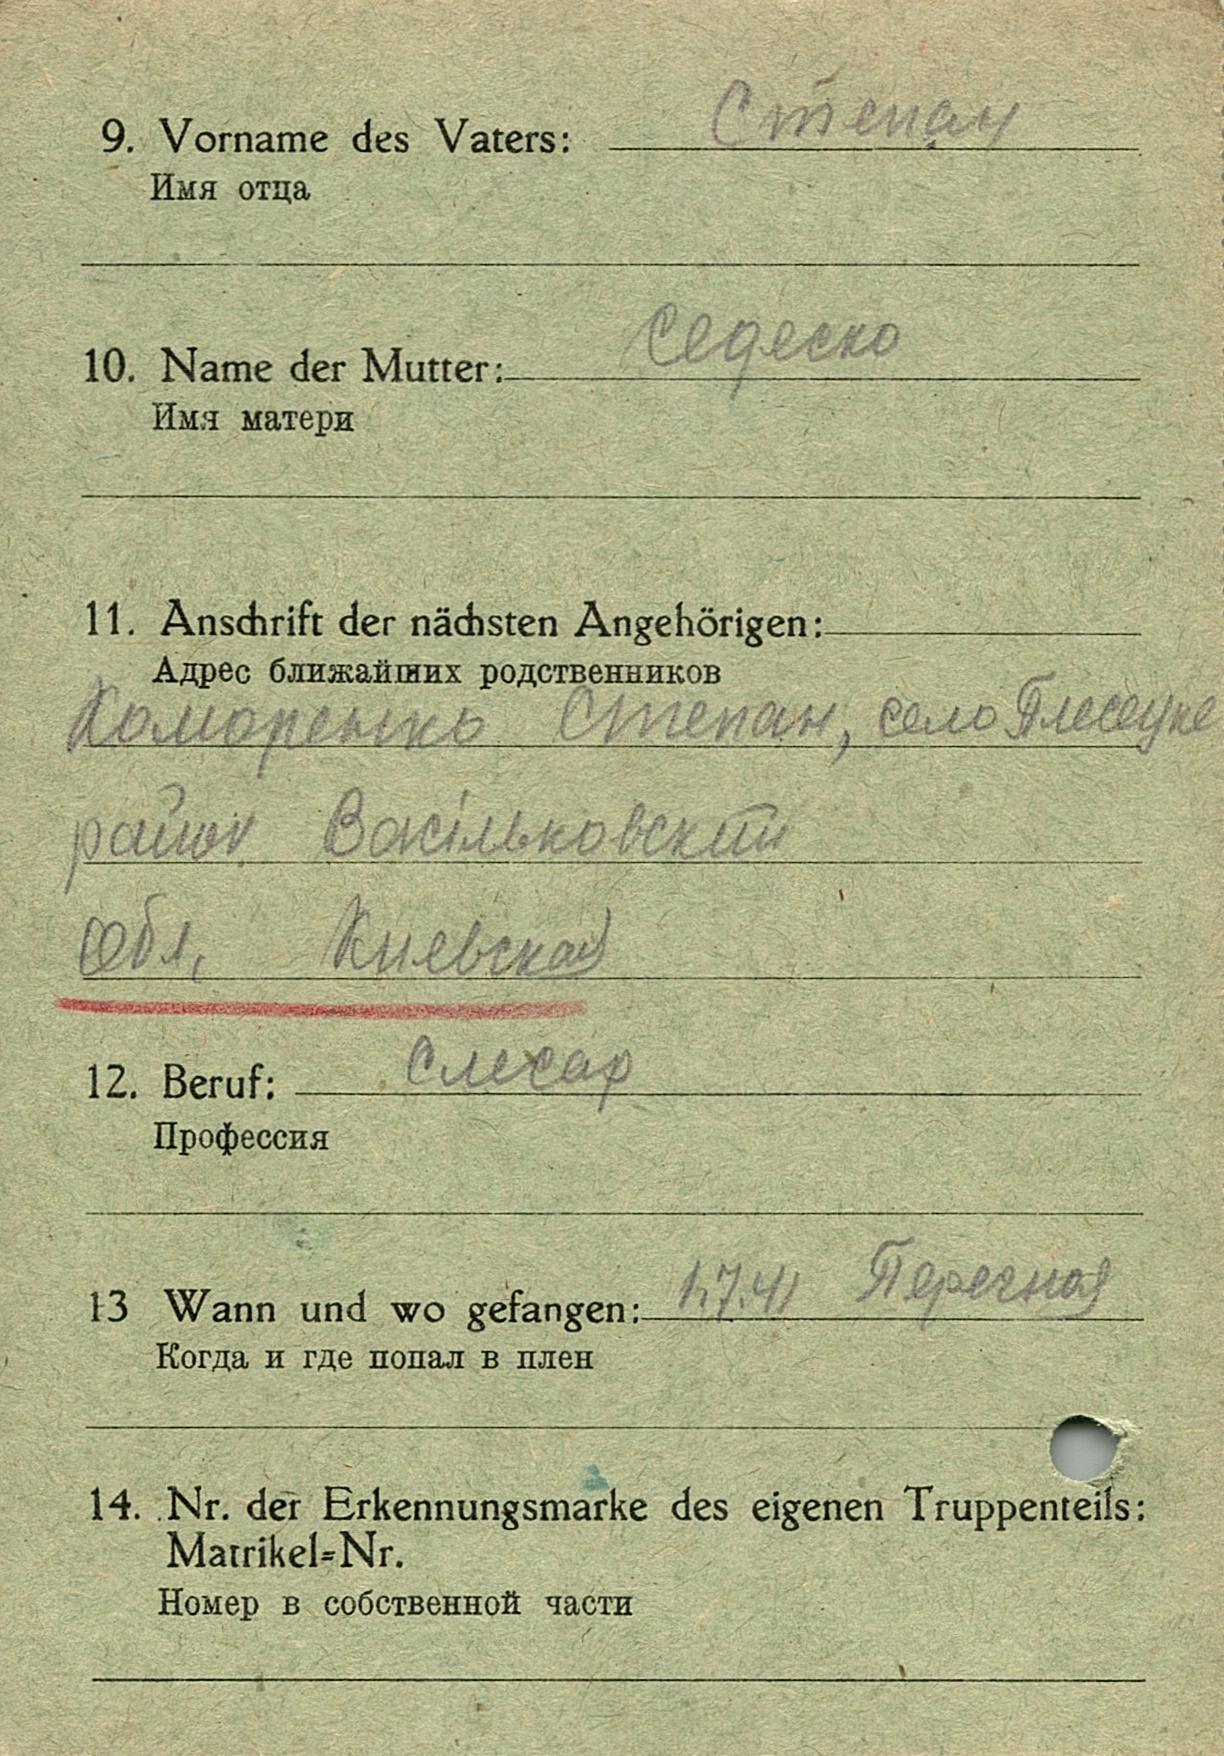 9. Vorname des Vaters: Степан
Имя отца
10. Name der Mutter: Седеско
Имя матери
11. Anschrift der nächsten Angehörigen:
Адрес ближайших родственников
Коморенко Степан, село Плесецке
район Васільковский
Обл, Киевская
12. Beruf: Слесар
Профессия
13 Wann und wo gefangen: 1.7.41
Когда и где попал в плен
14. Nr. der Erkennungsmarke des eigenen Truppenteils:
Matrikel=Nr.
Номер в собственной части